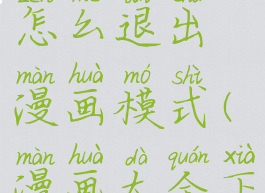 怎么退出
màn huà mó shì
漫画模式(
màn huà dà quán xià
漫画大全下